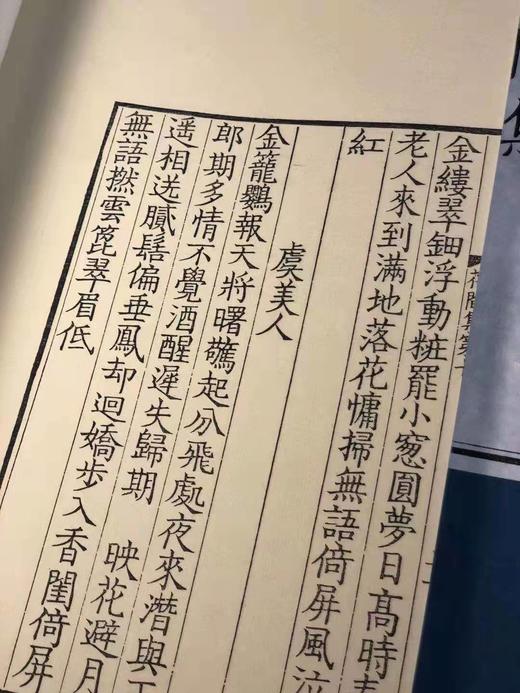 集
花間集
金縷翠鈿浮動粧罷小窓圓夢日髙時
老人來到滿地落花慵掃無語倚屏風泣
紅
虞美人
金籠鸚報天將曙驚起分飛處夜來潛與
郎期多情不覺酒醒遲失歸期　映花避月
遥相送膩髻偏垂鳳却迴嬌步入香閨倚屏
無語撚雲篦翠眉低